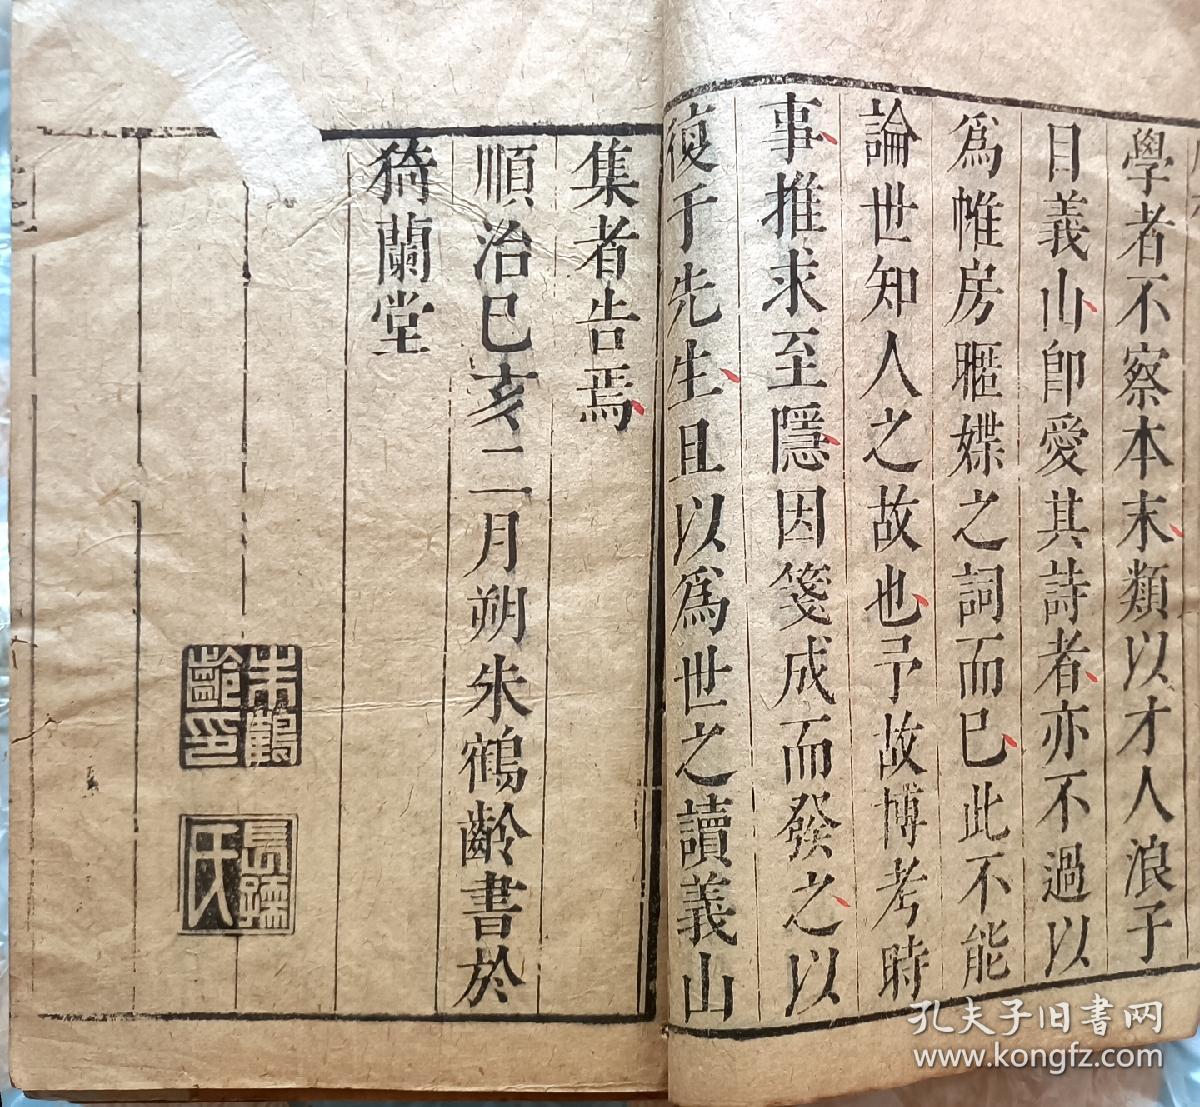 學者不察本末類以才人浪子
目義山即愛其詩者亦不過以
爲帷房暱媟之詞而已此不能
論世知人之故也予故博考時
事推求至隱因箋成而發之以
復于先生且以爲世之讀義山
集者告焉
順治己亥二月朔朱鶴齡書於
猗蘭堂
朱鶴齡印
長孺氏
孔夫子旧书网
www.kongfz.com